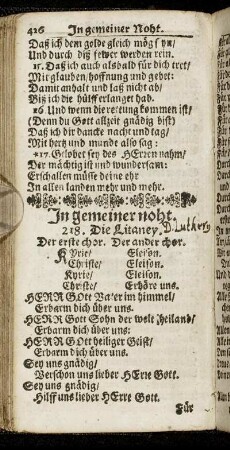 426 In gemeiner Noht.
Daß ich dem golde gleich mög syn/
Und durch diß fewr bewert werden rein.
15. Daß ich auch alsbald für dich tret/
Mit glauben/hoffnung und gebet:
Damit anhalt und laß nicht ab/
Biß ich die hülff erlanget hab.
16. Und wenn die rettung kommen ist/
(Denn du Gott allzeit gnädig bist)
Daß ich dir dancke nacht und tag/
Mit hertz und munde also sag:
17. Gelobet sey des HErren nahm/
Der mächtig ist und wundersam:
Erschallen müsse deine ehr
In allen landen mehr und mehr.
In gemeiner noht.
218. Die Litaney. D. Luthery
Der erste chor. Der ander chor.
Kyrie/ Eleison.
Christe/ Eleison.
Kyrie/ Eleison.
Christe/ Erhöre uns.
HERR GOtt Vater im himmel/
Erbarm dich über uns.
HERR GOtt Sohn der welt heiland/
Erbarm dich über uns:
HERR GOtt heiliger Geist/
Erbarm dich über uns.
Sey uns gnädig/
Verschon uns lieber HErre Gott.
Sey uns gnädig/
Hilff uns lieber HErre Gott.
Für